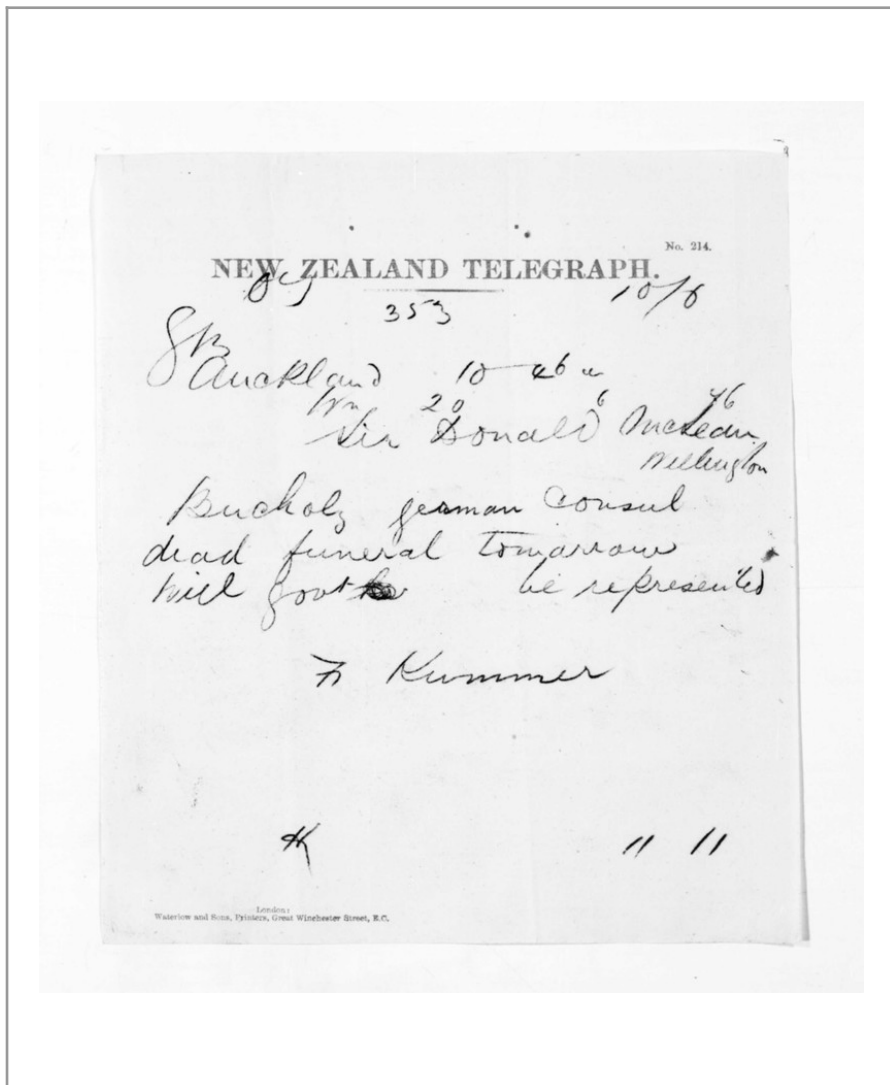 No. 214.
NEW ZEALAND TELEGRAPH.
353 10/6
Auckland 10 46 a
20 6 46
Sir Donald McLean
Wellington
Bucholz german Consul
dead funeral tomorrow
will govt be represented
Kummer
11 11
London:
Waterlow and Sons, Printers, Great Winchester Street, E.C.